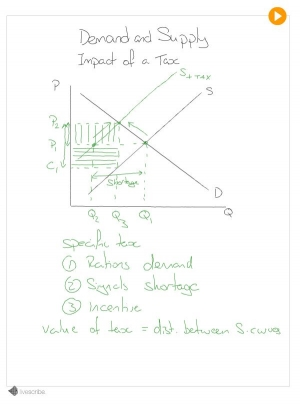 Demand and Supply
Impact of a Tax
P
S+tax
S
P2
P1
C1
Shortage
D
Q2 Q3 Q1
Q
Specific tax
① Rations demand
② Signals shortage
③ Incentive
Value of tax = dist. between S.curves
livescribe